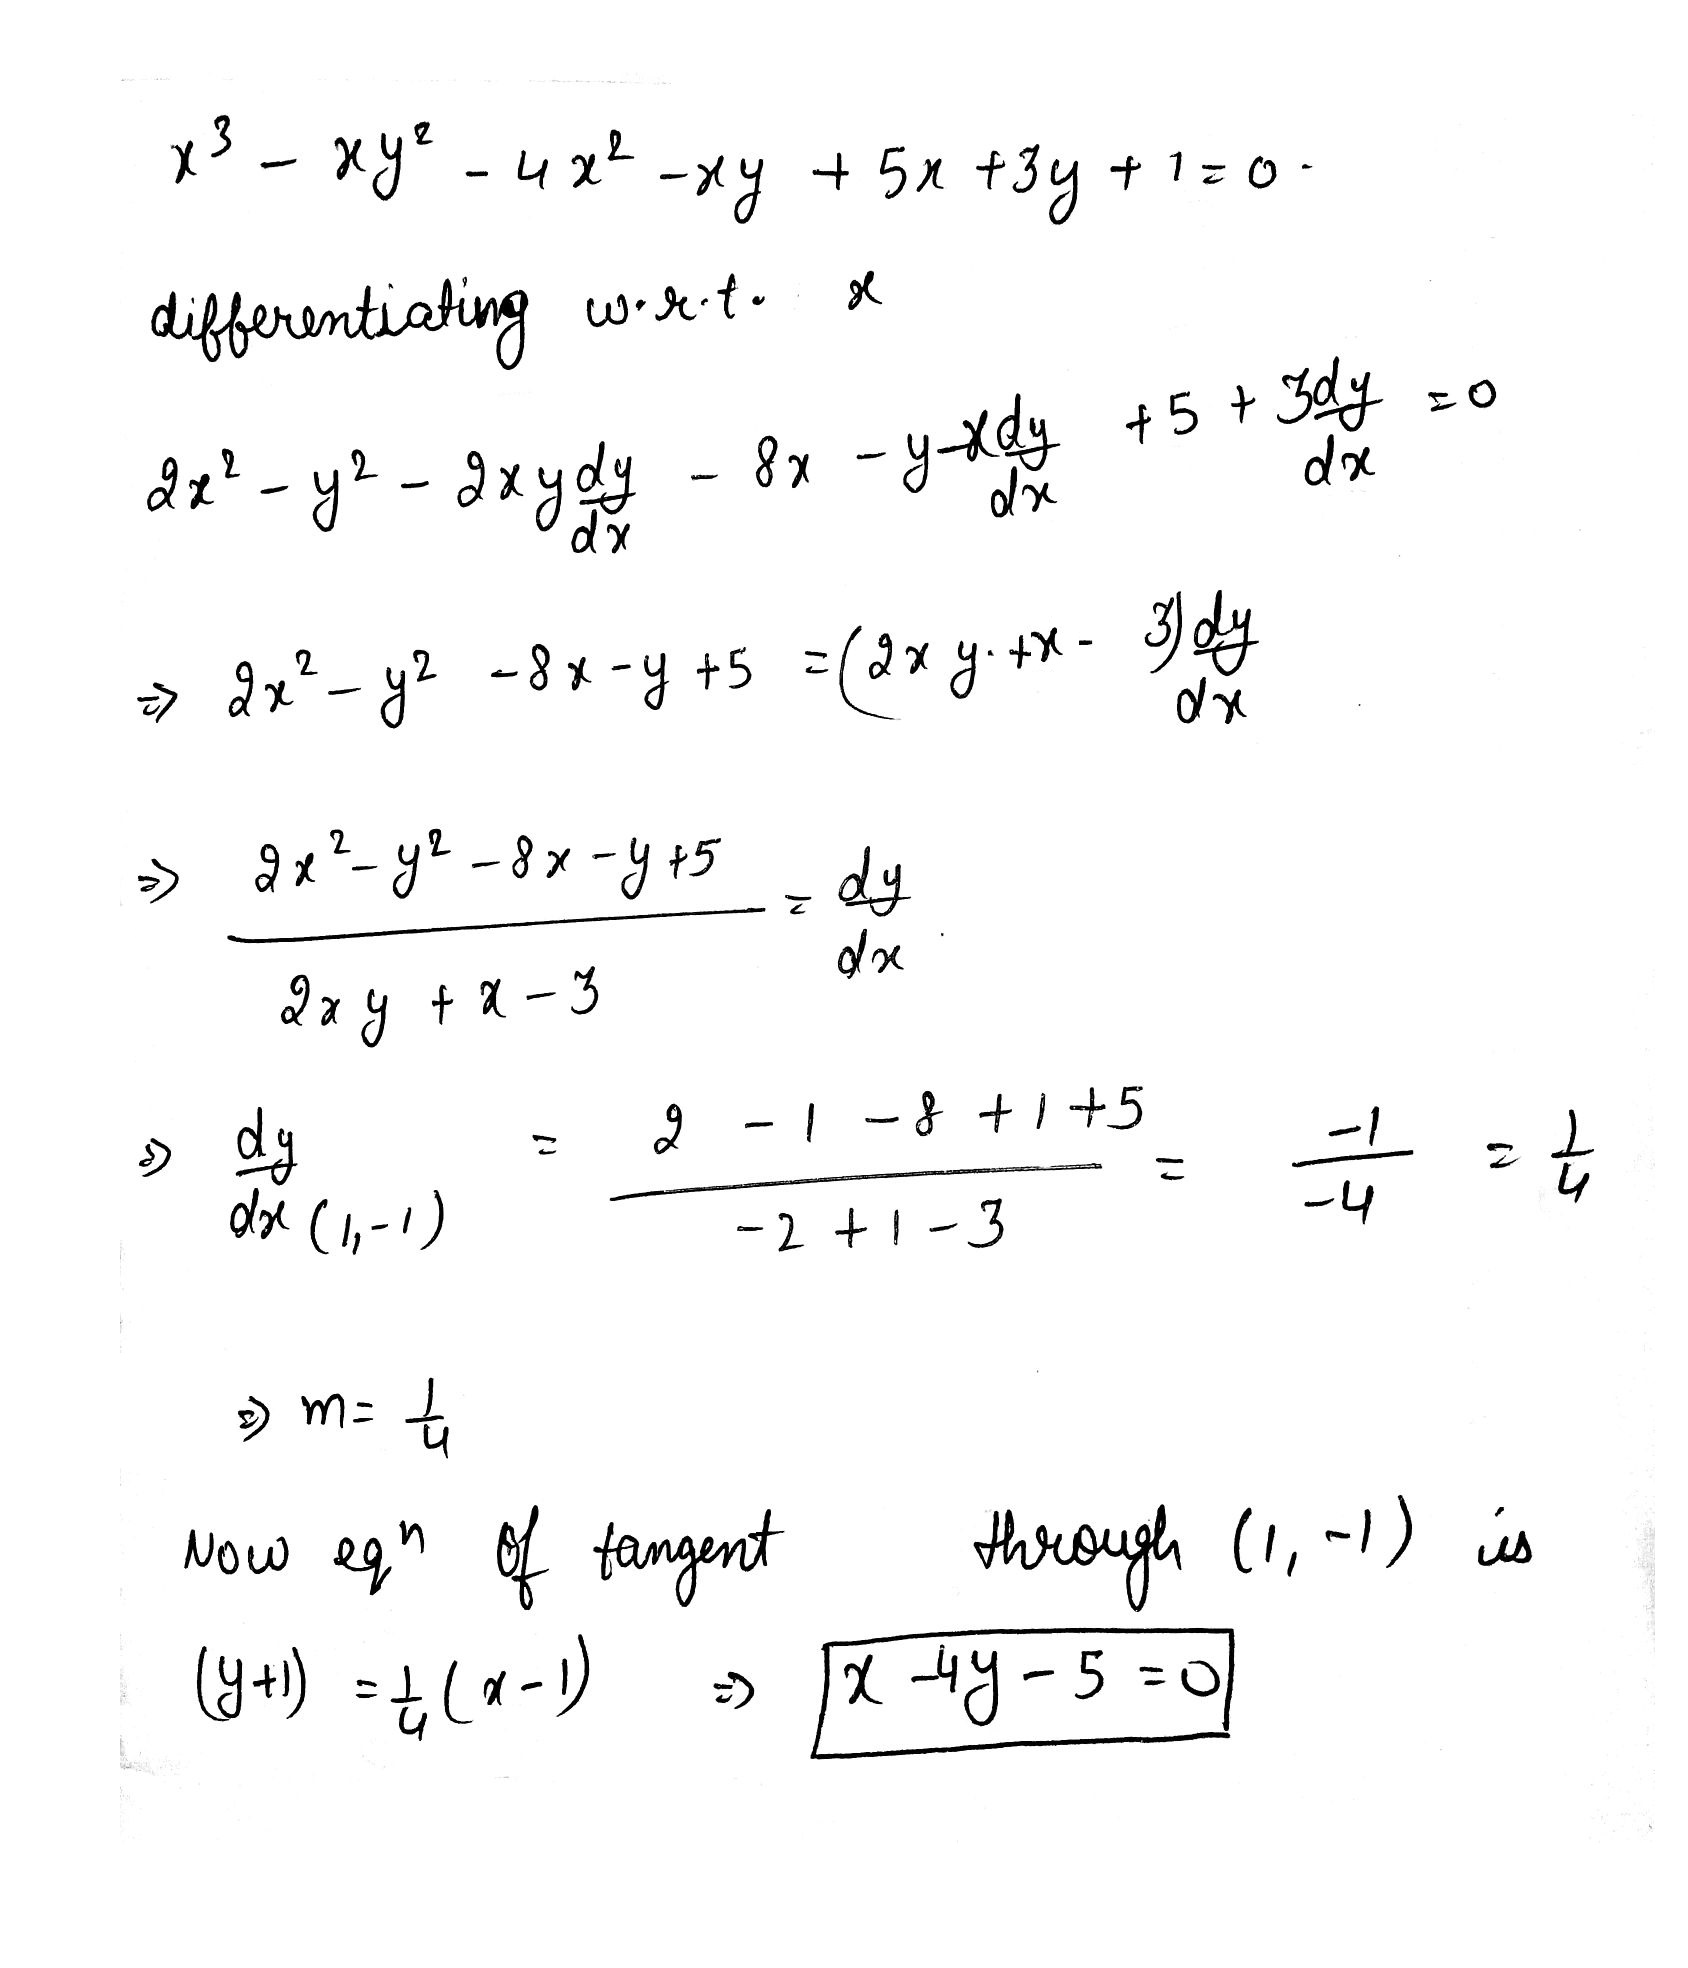 x³ - xy² - 4x² - xy + 5x + 3y + 1 = 0.
differentiating w.r.t. x
2x² - y² - 2xy dy/dx - 8x - y - x dy/dx + 5 + 3dy/dx = 0
⇒ 2x² - y² - 8x - y + 5 = (2xy. + x - 3) dy/dx
⇒ (2x² - y² - 8x - y + 5)/(2xy + x - 3) = dy/dx
⇒ dy/dx (1,-1) = (2 - 1 - 8 + 1 + 5)/(-2 + 1 - 3) = -1/-4 = 1/4
⇒ m = 1/4
Now eqⁿ of tangent through (1, -1) is
(y+1) = 1/4 (x - 1) ⇒ x - 4y - 5 = 0